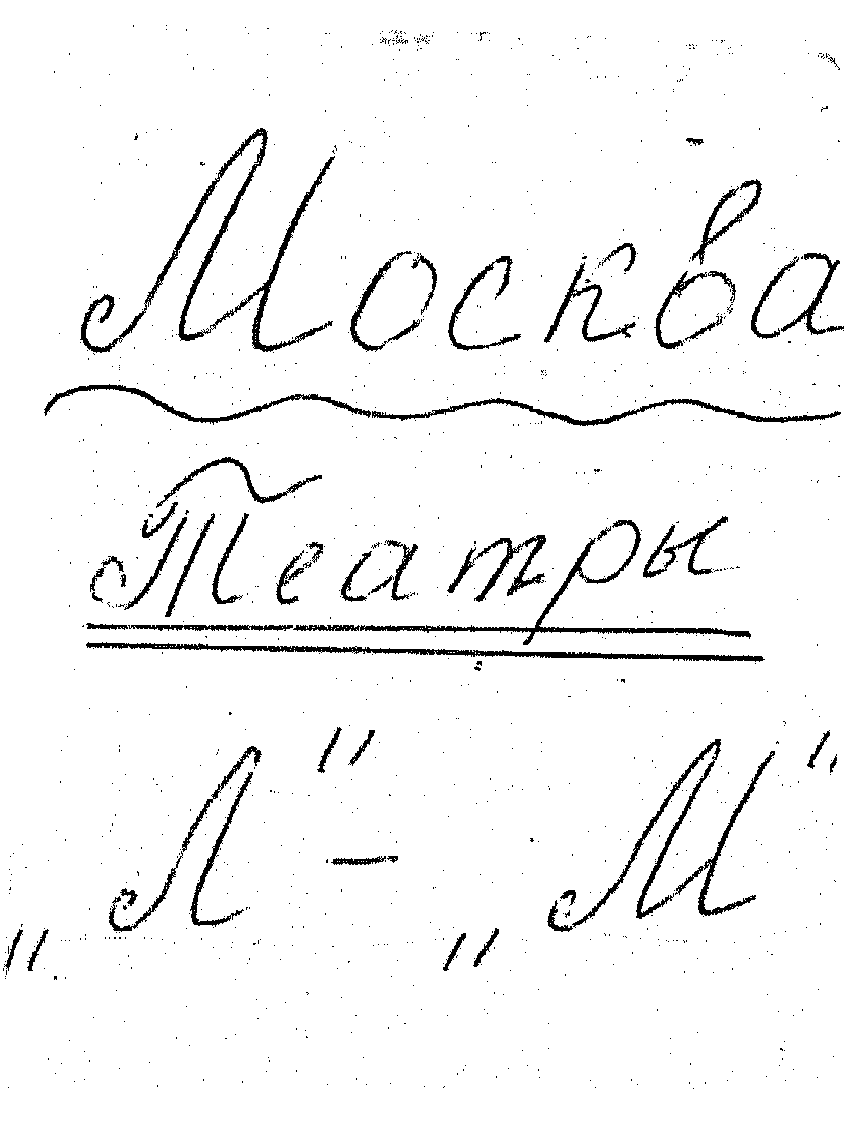 Москва
Театры
„Л" – „М"